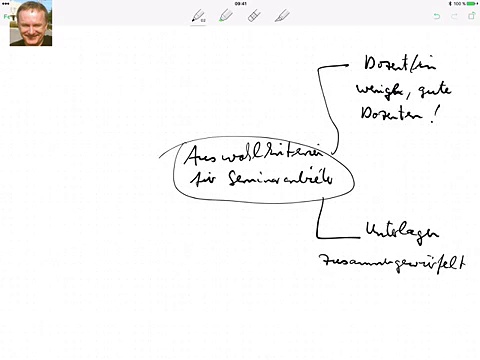 09:41
100 %
Auswahlkriterien
für Seminaranbieter
Dozent/in
wenige, gute
Dozenten!
Unterlagen
zusammengewürfelt